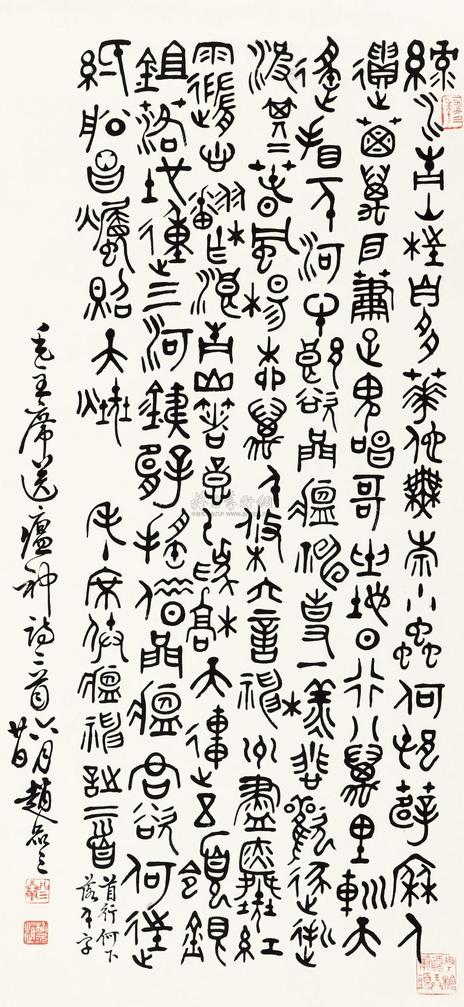 綠水青山枉自多華佗無奈小蟲何邨薜荔人
遺矢萬戶蕭疏鬼唱歌坐地日行八萬里巡天
遙看一千河牛郎欲問瘟神事一樣悲歡逐逝
波其二春風楊柳萬千條六億神州盡舜堯紅
雨隨心翻作浪青山著意化為橋天連五嶺銀
鋤落地動三河鐵臂搖借問瘟君欲何往
紙船明燭照天燒毛主席送瘟神詩二首
首行何下
落千字
毛主席送瘟神詩二首 月廿日趙之